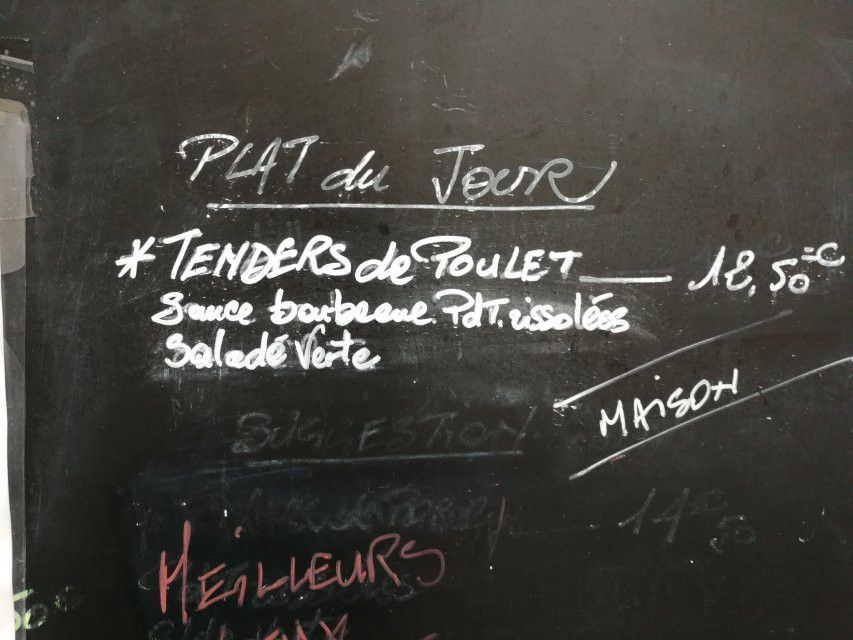 PLAT du JOUR
*TENDERS de POULET 12,50€
Sauce barbecue. PdT. rissolées
Salade Verte
MAiSON
SUGGESTION
14€50
MEiLLEURS